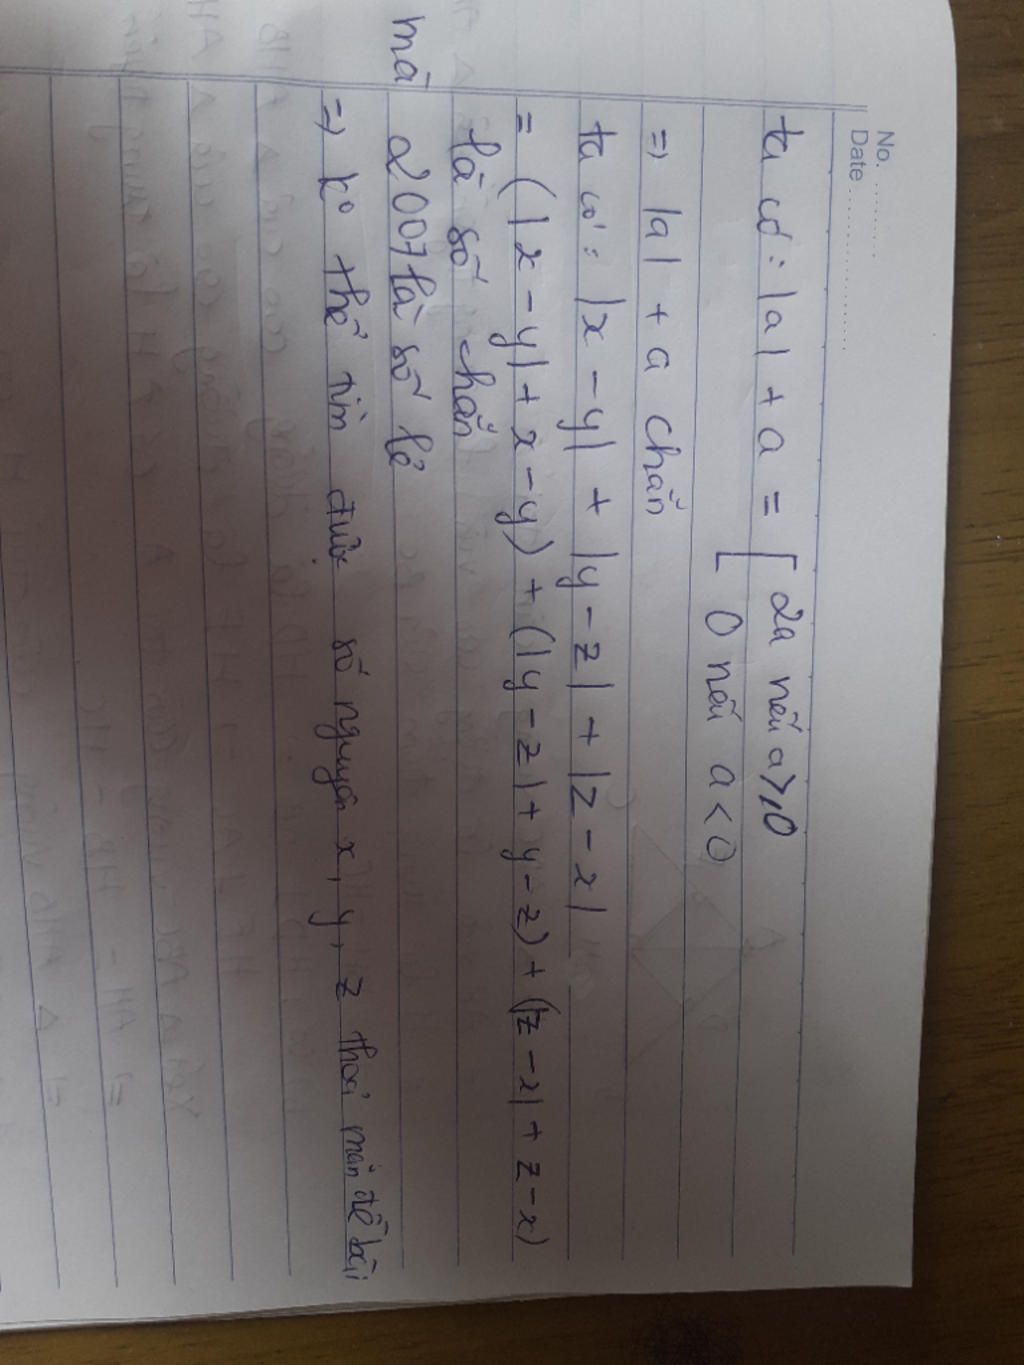 No. ............
Date .....................
ta có : |a| + a = [ 2a nếu a ≥ 0
0 nếu a < 0
=> |a| + a chẵn
ta có : |x - y| + |y - z| + |z - x|
= (|x - y| + x - y) + (|y - z| + y - z) + (|z - x| + z - x)
là số chẵn
mà 2007 là số lẻ
=> k° thể tìm được số nguyên x, y, z thoả mãn đề bài